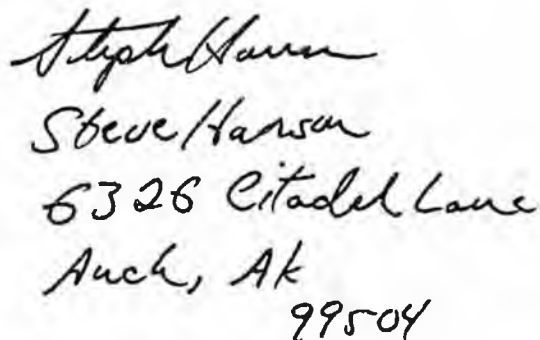 Steph Hanson
Steve Hanson
6326 Citadel Lane
Anch, Ak
99504